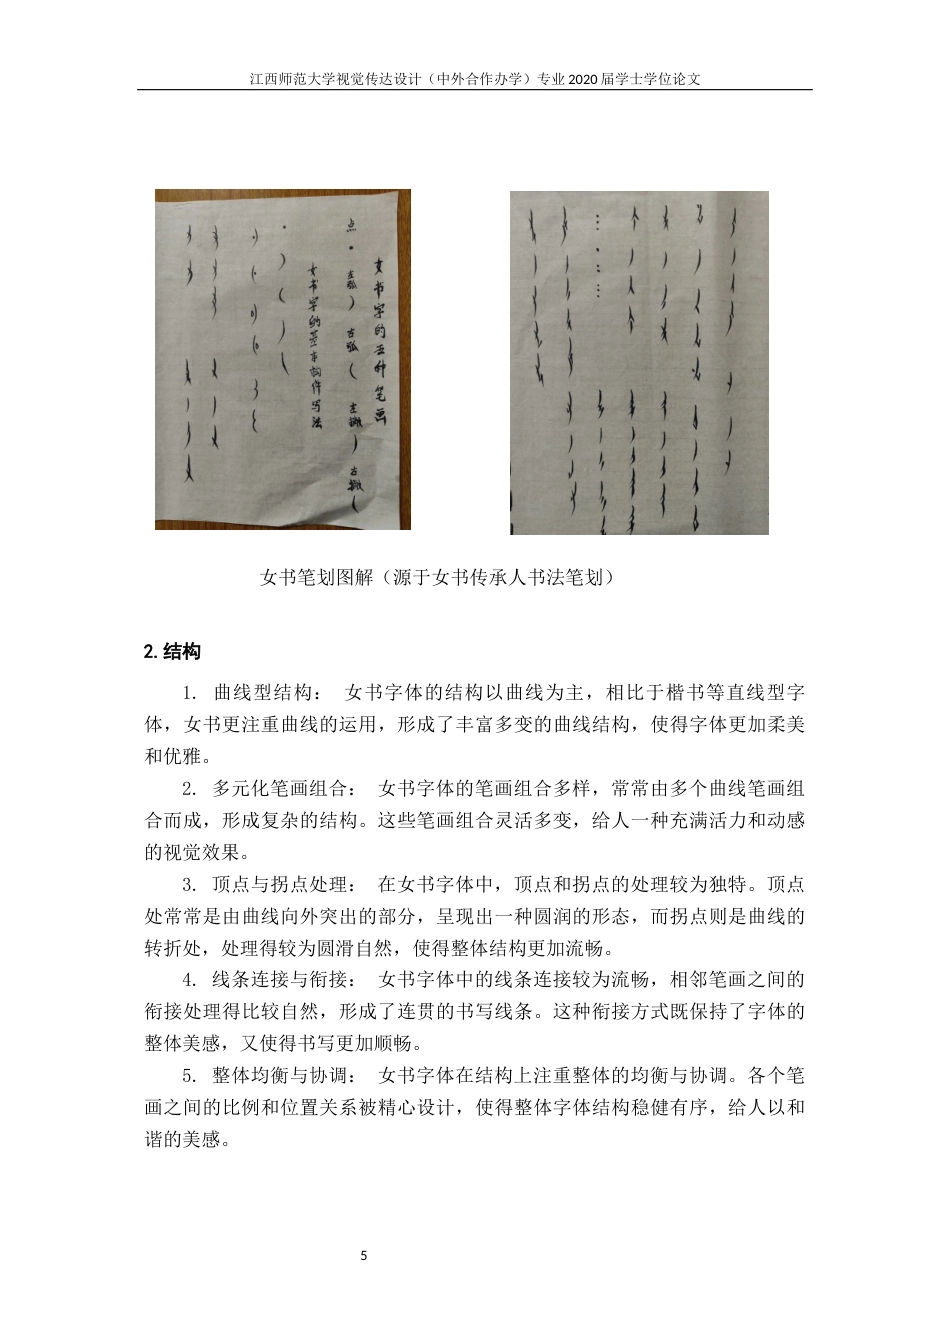 江西师范大学视觉传达设计（中外合作办学）专业 2020 届学士学位论文
女书字的五种笔画
点 左弧 右弧 左撇 右撇
女书字的基本构件写法
女书笔划图解（源于女书传承人书法笔划）
2.结构
1. 曲线型结构： 女书字体的结构以曲线为主，相比于楷书等直线型字
体，女书更注重曲线的运用，形成了丰富多变的曲线结构，使得字体更加柔美
和优雅。
2. 多元化笔画组合： 女书字体的笔画组合多样，常常由多个曲线笔画组
合而成，形成复杂的结构。这些笔画组合灵活多变，给人一种充满活力和动感
的视觉效果。
3. 顶点与拐点处理： 在女书字体中，顶点和拐点的处理较为独特。顶点
处常常是由曲线向外突出的部分，呈现出一种圆润的形态，而拐点则是曲线的
转折处，处理得较为圆滑自然，使得整体结构更加流畅。
4. 线条连接与衔接： 女书字体中的线条连接较为流畅，相邻笔画之间的
衔接处理得比较自然，形成了连贯的书写线条。这种衔接方式既保持了字体的
整体美感，又使得书写更加顺畅。
5. 整体均衡与协调： 女书字体在结构上注重整体的均衡与协调。各个笔
画之间的比例和位置关系被精心设计，使得整体字体结构稳健有序，给人以和
谐的美感。
5